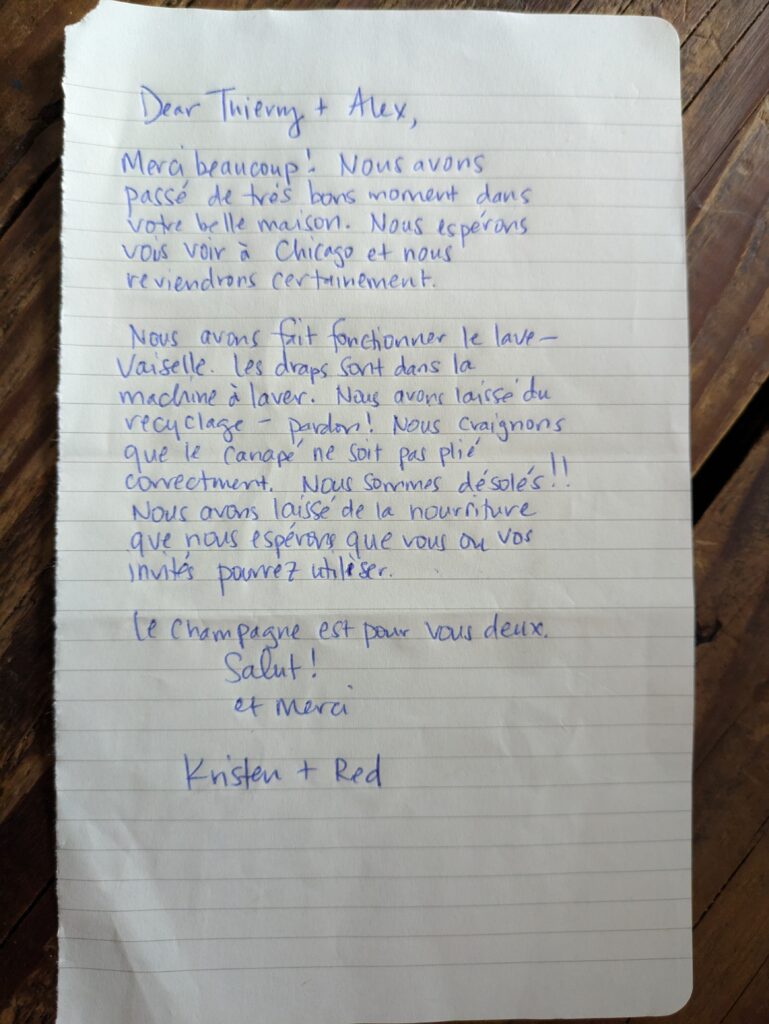 Dear Thierry + Alex,
Merci beaucoup! Nous avons
passé de trés bons moment dans
votre belle maison. Nous espérons
vois voir à Chicago et nous
reviendrons certainement.
Nous avons fait fonctionner le lave-
vaiselle. Les draps sont dans la
machine à laver. Nous avons laissé du
recyclage - pardon! Nous craignons
que le canapé ne soit pas plié
correctment. Nous sommes désolés!!
Nous avons laissé de la nourriture
que nous espérons que vous ou vos
invités pourrez utiliser.
Le Champagne est pour vous deux.
Salut!
et Merci
Kristen + Red